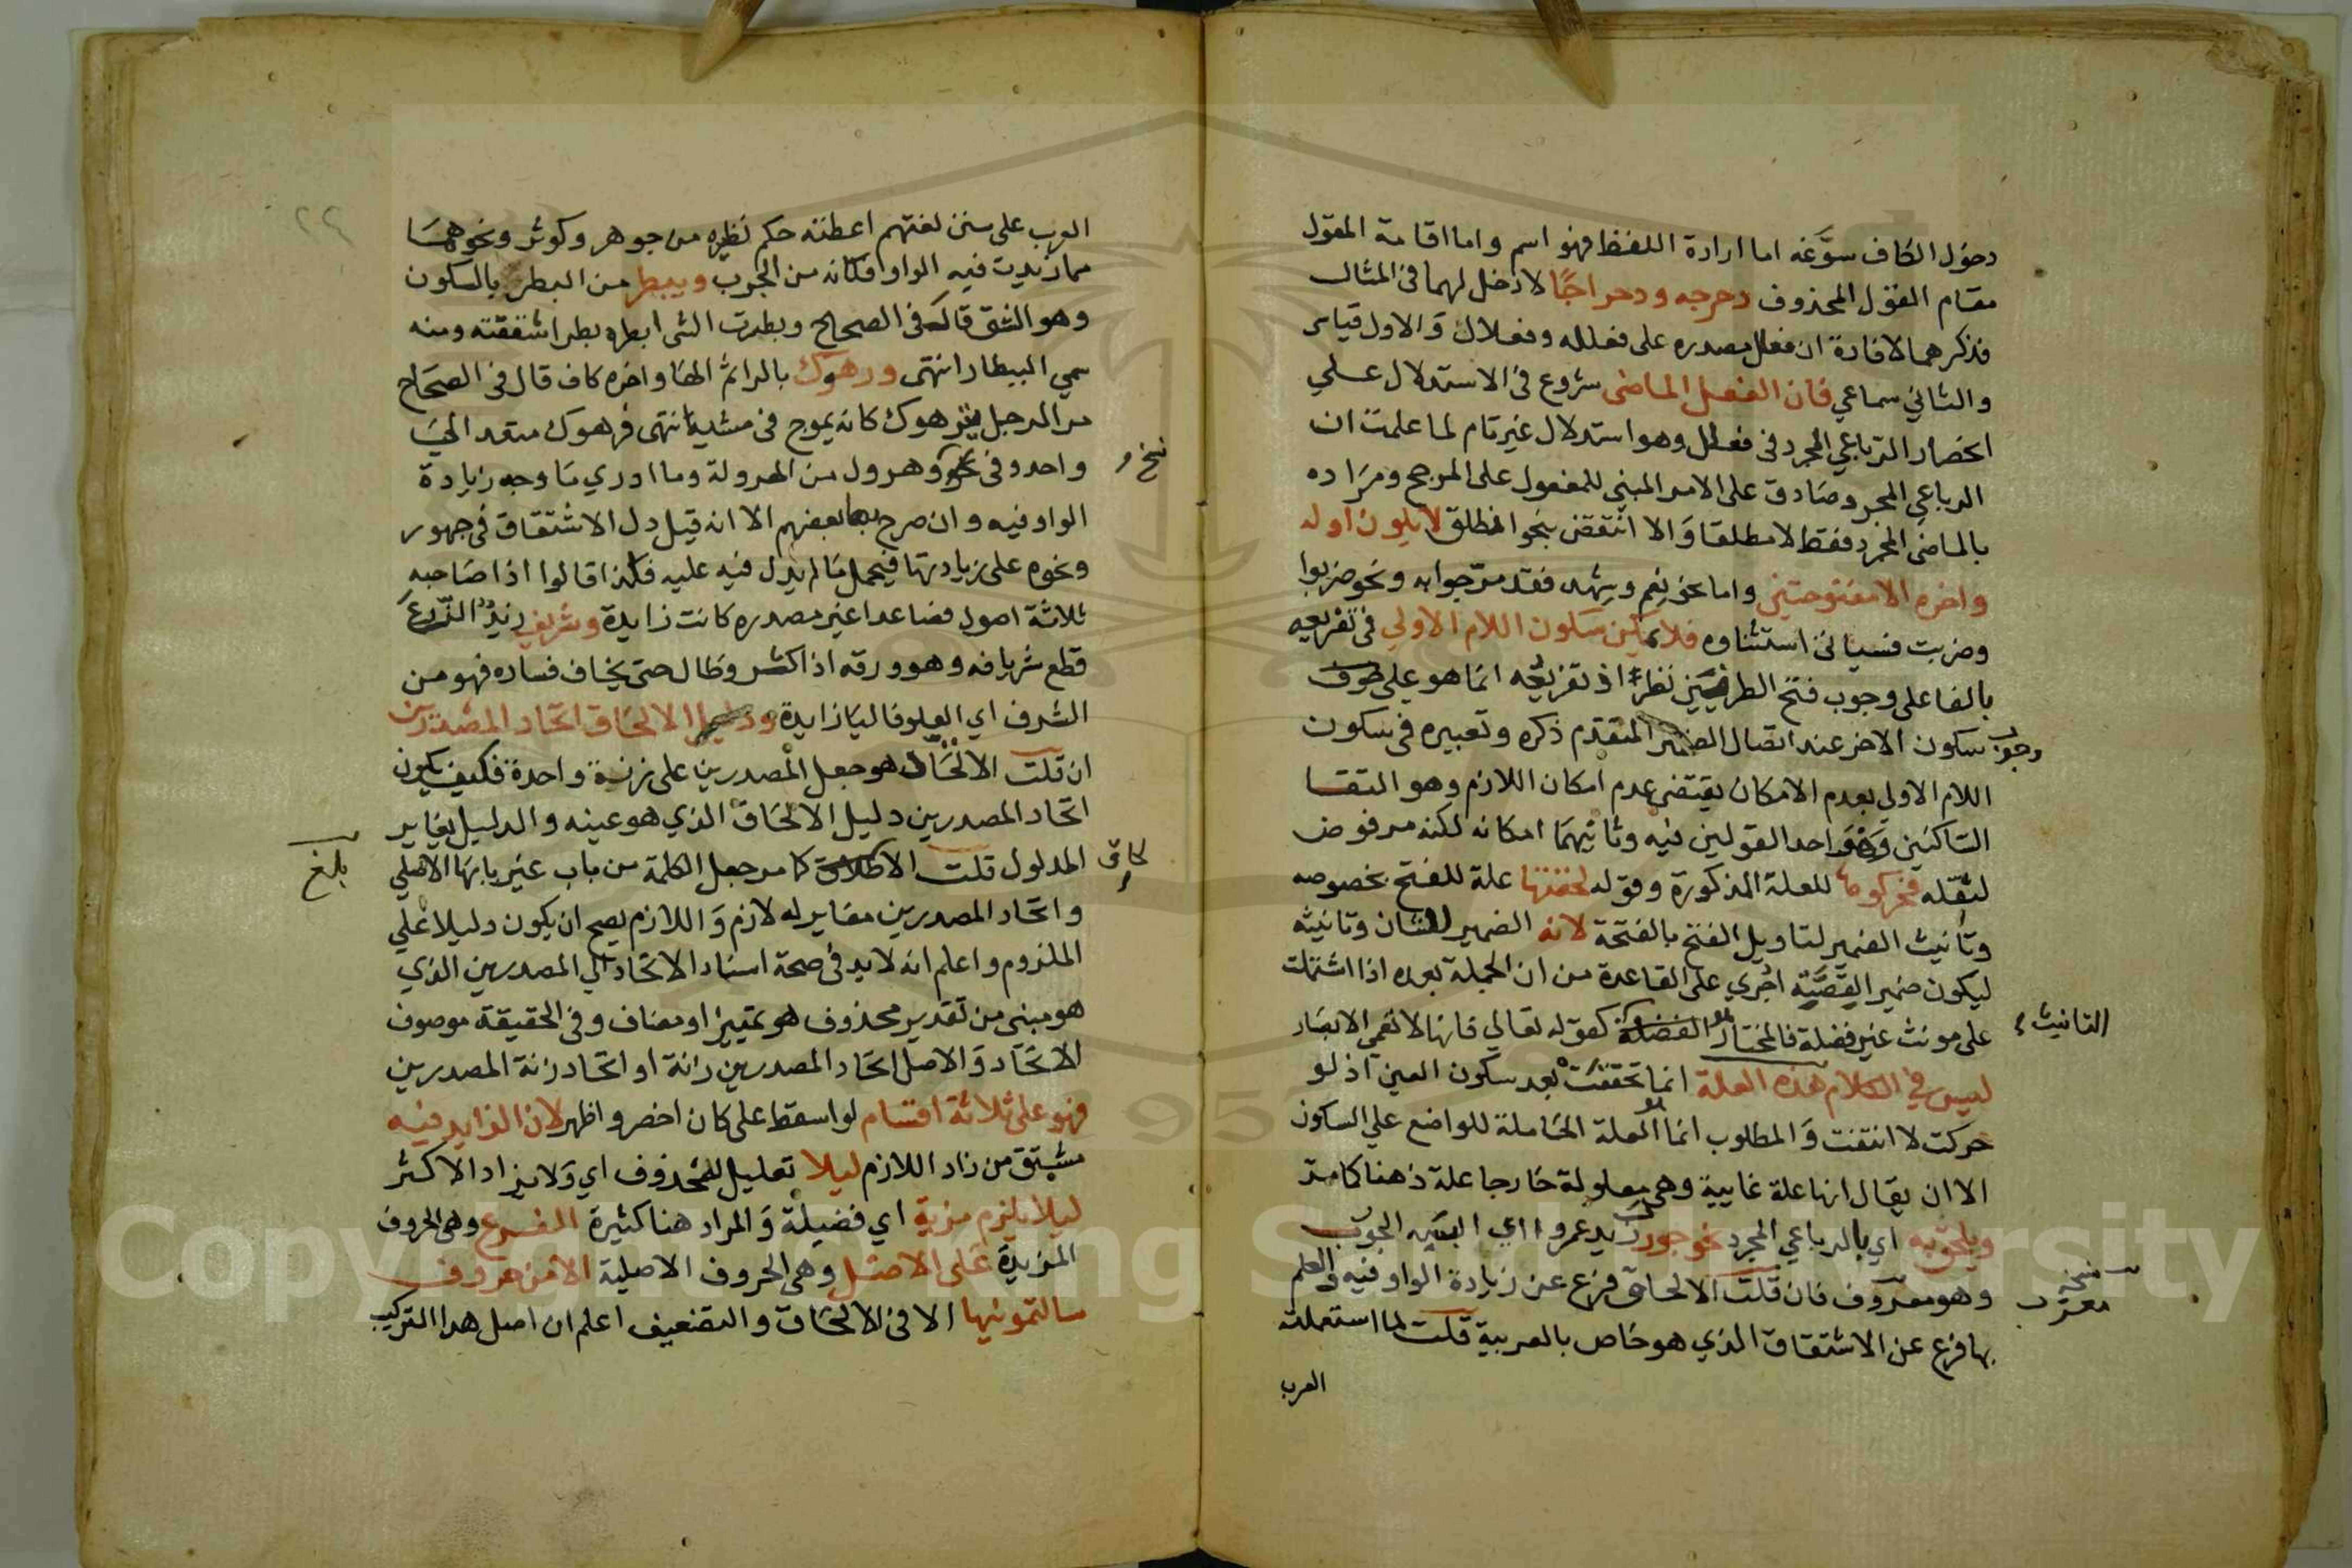 دخول الكاف سوّغه اما ارادة اللفظ فهو اسم واما اقامة المقول
مقام القول المحذوف دحرجه ودحراجًا لا دخل لهما في المثال
فذكرهما لافادة ان فعلل مصدره على فعلله وفعلال والاول قياس
والثاني سماعي فان الفعل الماضى شروع في الاستدلال على
انحصار الرباعي المجرد في فعلل وهو استدلال غير تام لما علمت ان
الرباعي المجرد صادق على الامر المبني للمفعول على المرجح ومراده
بالماضي المجرد فقط لا مطلقا والا انتقض بنحو انطلق لا يكون اوله
واخره الا مفتوحتين واما نحو نعم وشهد فقد مر جوابه ونحو ضربوا
وضربت فسياتي استثناوه فلا يمكن سكون اللام الاولي في تفريعه
بالفا على وجوب فتح الطرفين نظر اذ تفريعه انما هو على
وجوب سكون الاخر عند اتصال الضمير المتقدم ذكره وتعبيره في سكون
اللام الاولي بعدم الامكان يقتضي عدم امكان اللازم وهو التقا
الساكنين وهو احد القولين فيه وثانيهما امكانه لكنه مرفوض
لثقله فحركوها للعلة المذكورة وقوله لخفتها علة للفتح بخصوصه
وتانيث الضمير لتاويل الفتح بالفتحة لانه الضمير للشان وتانيثه
ليكون ضمير القصة اجري على القاعدة من ان الجملة بعده اذا اشتملت
على مونث غير فضلة فالمختار التانيث كقوله تعالي فانها لا تعمي الابصار
ليس في الكلام هذه العلة انما تحققت بعد سكون العين اذ لو
حركت لا انتفت والمطلوب انما العلة الحاملة للواضع علي السكون
الا ان يقال انها علة غايية وهي معلولة خارجا علة ذهنا كما مر
ويلحق به اي بالرباعي المجرد نحو جورب زيد عمروا اي البسه الجورب
وهو معروف فان قلت الالحاق فرع عن زيادة الواو فيه والعلم
نسخة معرب
بها فرع عن الاشتقاق الذي هو خاص بالعربية قلت لما استعملته
العرب
٢٢
العرب على سنن لغتهم اعطته حكم نظيره من جوهر وكوثر ونحوهما
مما زيدت فيه الواو فكانه من الجرب وبيطر من البطر بالسكون
وهو الشق قاله في الصحاح وبطرت الشى ابطره بطرا شققته ومنه
سمي البيطار انتهى ورهوك بالرا ثم الها واخره كاف قال في الصحاح
مر الرجل يترهوك كانه يموج في مشيته انتهى فرهوك متعد الي
نخ و
واحد وفي نحو وهرول من الهرولة وما ادري ما وجه زيادة
الواو فيه وان صرح بها بعضهم الا انه قيل دل الاشتقاق في جهور
ونحوه على زيادتها فيحمل ما لم يدل فيه عليه فكذا قالوا اذا صاحبه
ثلاثة اصول فصاعدا غير مصدره كانت زايدة وشريف زيدٌ الزرعَ
قطع شريافه وهو ورقه اذا كثر وطال حتى يخاف فساده فهو من
الشرف اي العلو فاليا زايدة ودليل الالحاق اتحاد المصدرين
ان قلت الالحاق هو جعل المصدرين على زنة واحدة فكيف يكون
اتحاد المصدرين دليل الالحاق الذي هو عينه والدليل يغاير
المدلول قلت الالحاق كما مر جعل الكلمة من باب غير بابها الاصلي
بلغ
واتحاد المصدرين مغاير له لازم واللازم يصح ان يكون دليلا على
الملزوم واعلم انه لابد في صحة اسناد الاتحاد الي المصدرين الذي
هو مبنى من تقدير محذوف هو تمييز او مضاف وفي الحقيقة موصوف
الاتحاد والاصل اتحاد المصدرين زانة او اتحاد زانة المصدرين
فهو على ثلاثة اقسام لو اسقط على كان اخصر واظهر لان الزايد فيه
مشتق من زاد اللازم ليلا تعليل لمحذوف اي ولا يزاد الاكثر
ليلا يلزم مزية اي فضيلة والمراد هنا كثيرة الفرع وهى الحروف
المزيدة على الاصل وهى الحروف الاصلية الا من حروف
سالتمونيها الا في الالحاق والتضعيف اعلم ان اصل هدا التركيب